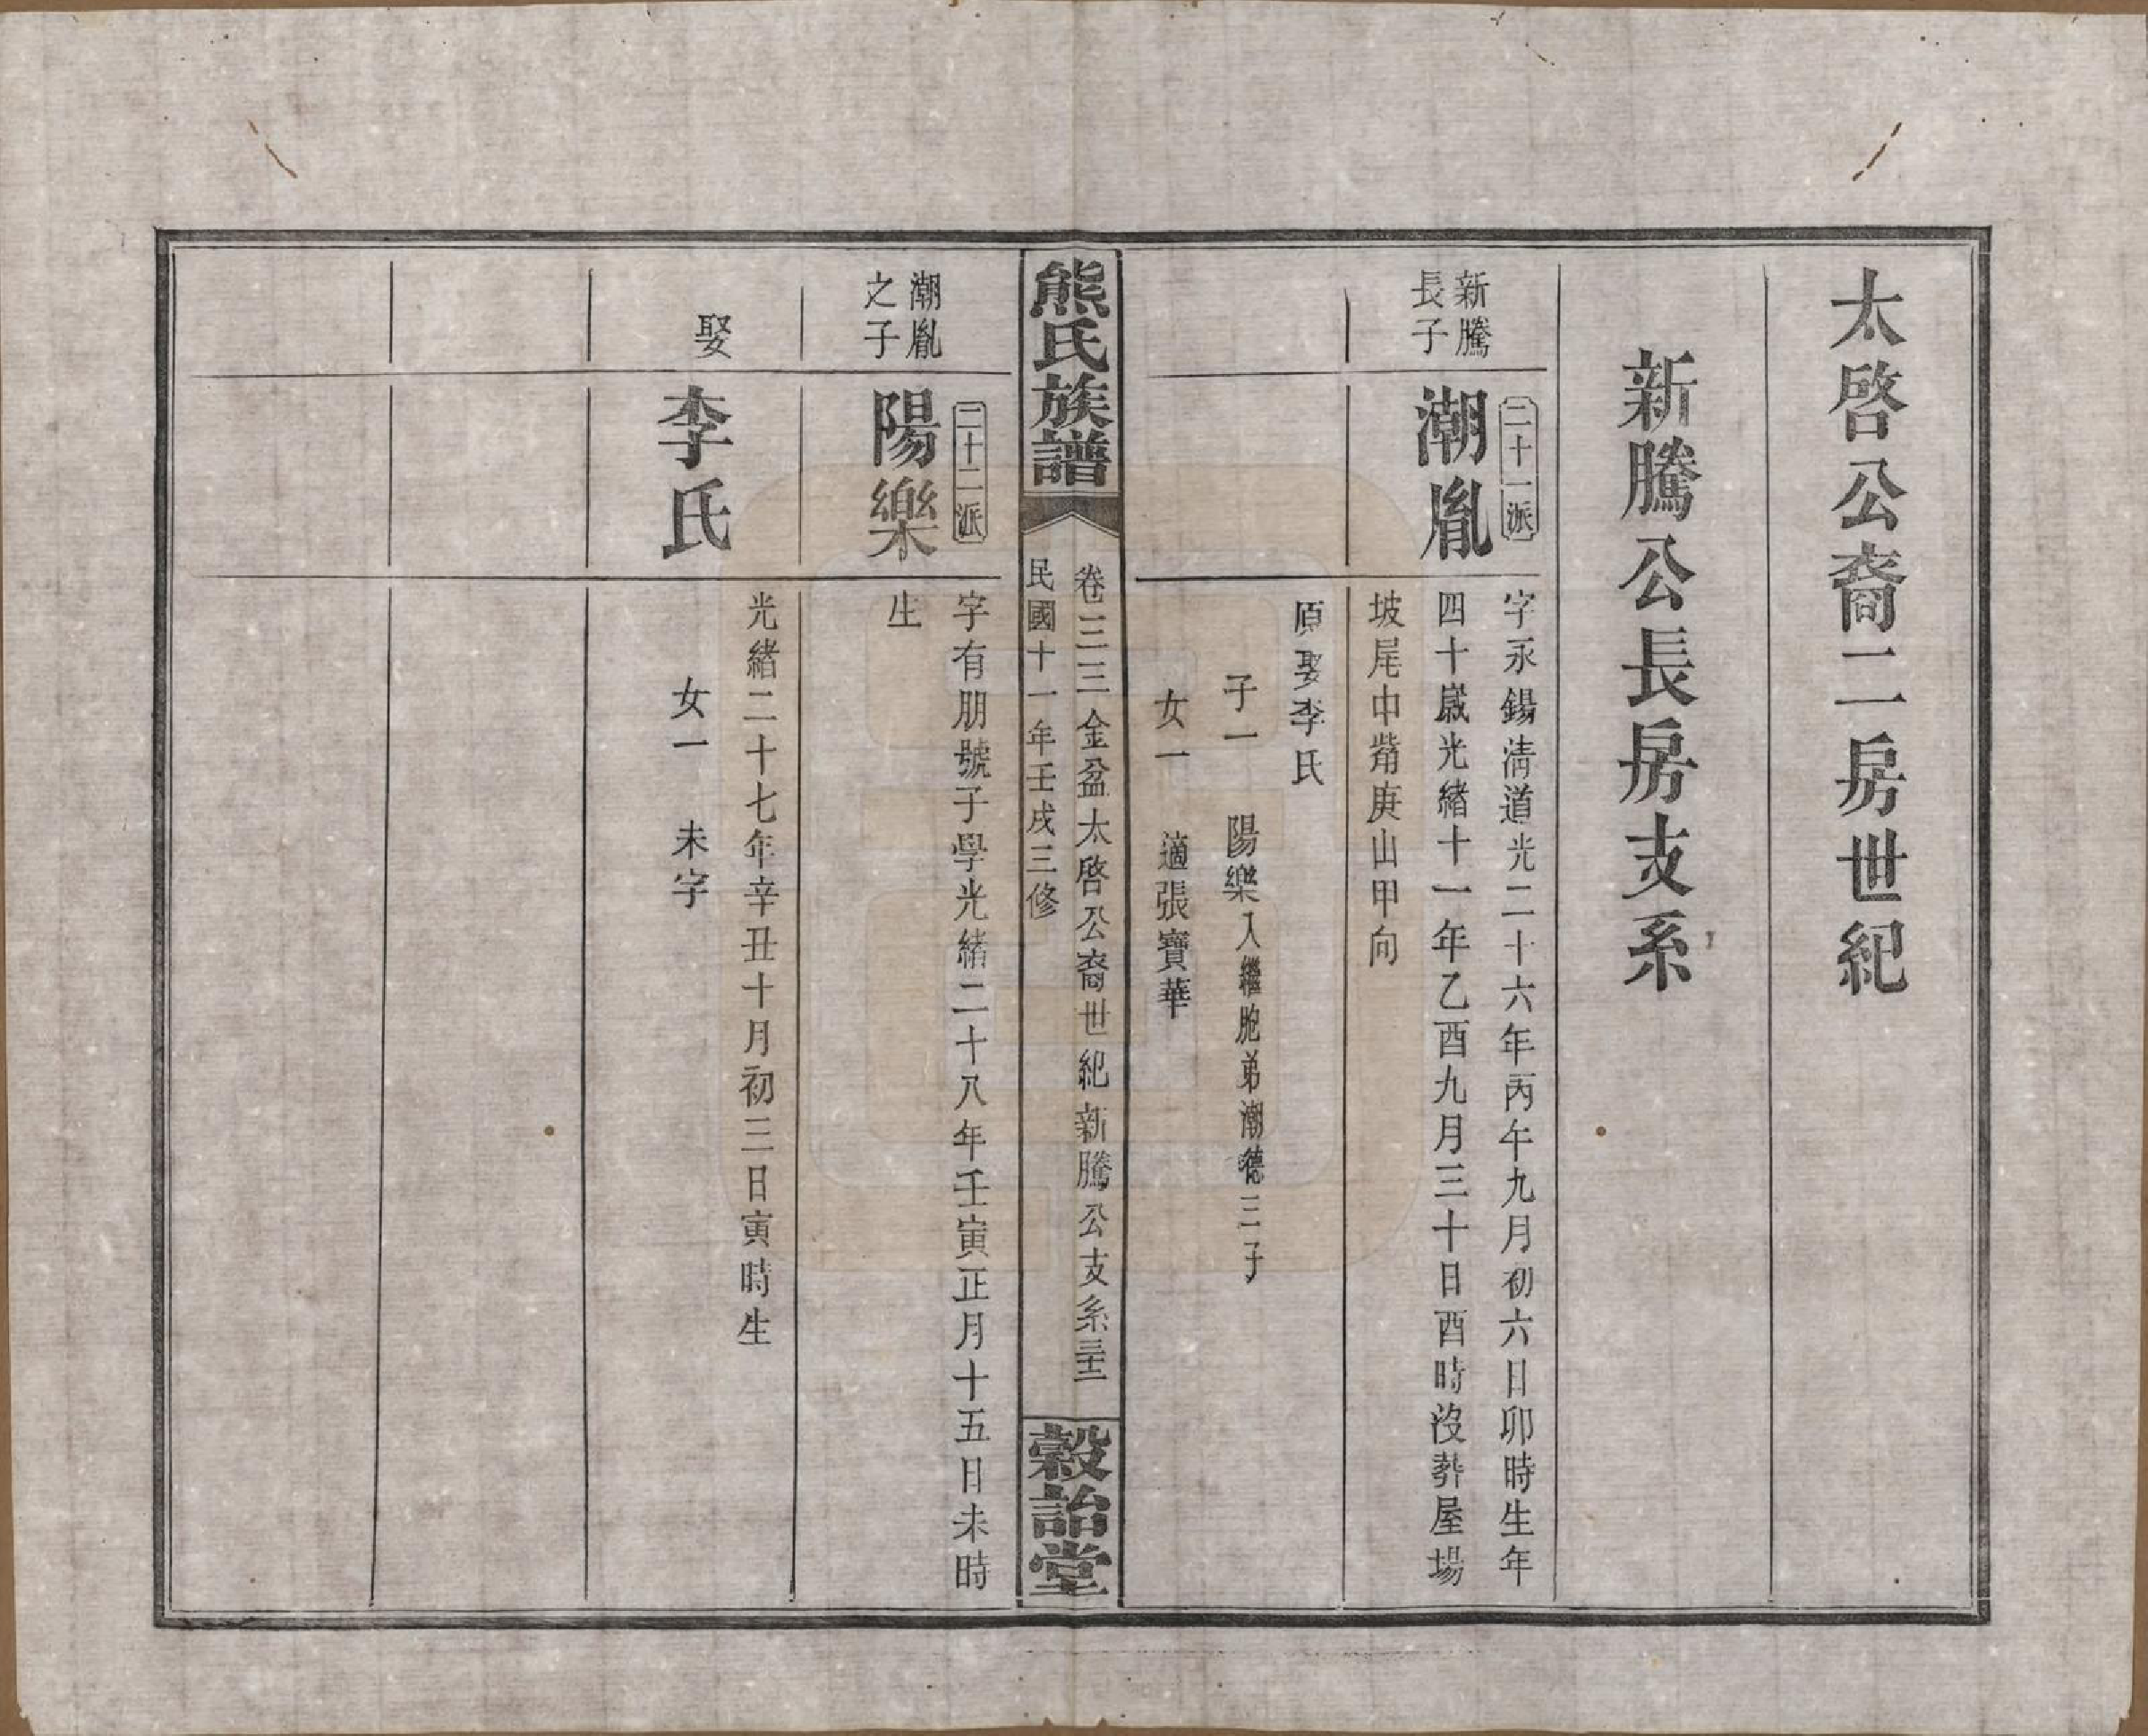 太啓公裔二房世紀
新騰公長房支系
新騰
長子
二十一派
潮胤
字永錫淸道光二十六年丙午九月初六日卯時生年
四十歲光緒十一年乙酉九月三十日酉時沒葬屋場
坡尾中觜庚山甲向
原娶李氏
子一　陽樂入繼胞弟潮德三子
女一　適張寶華
熊氏族譜
卷三三金盆太啓公裔世紀新騰公支系三十二
民國十一年壬戌三修
榖詒堂
潮胤
之子
二十二派
陽樂
字有朋號子學光緒二十八年壬寅正月十五日未時
生
娶
李氏
光緒二十七年辛丑十月初三日寅時生
女一　未字